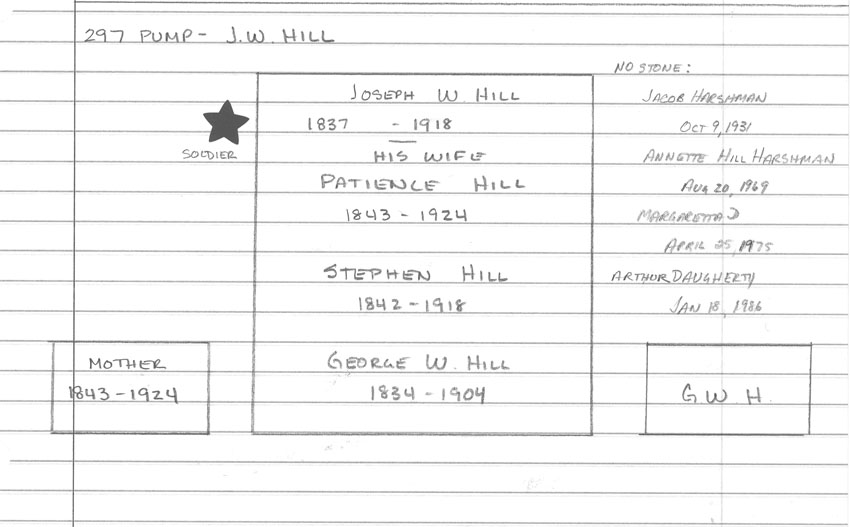 297 PUMP - J.W. HILL
JOSEPH W. HILL
1837 - 1918
HIS WIFE
PATIENCE HILL
1843 - 1924
STEPHEN HILL
1842 - 1918
GEORGE W. HILL
1834 - 1904
SOLDIER
MOTHER
1843 - 1924
G W H
NO STONE:
JACOB HARSHMAN
OCT 9, 1931
ANNETTE HILL HARSHMAN
AUG 20, 1969
MARGARETTA D
APRIL 25, 1975
ARTHUR DAUGHERTY
JAN 18, 1986